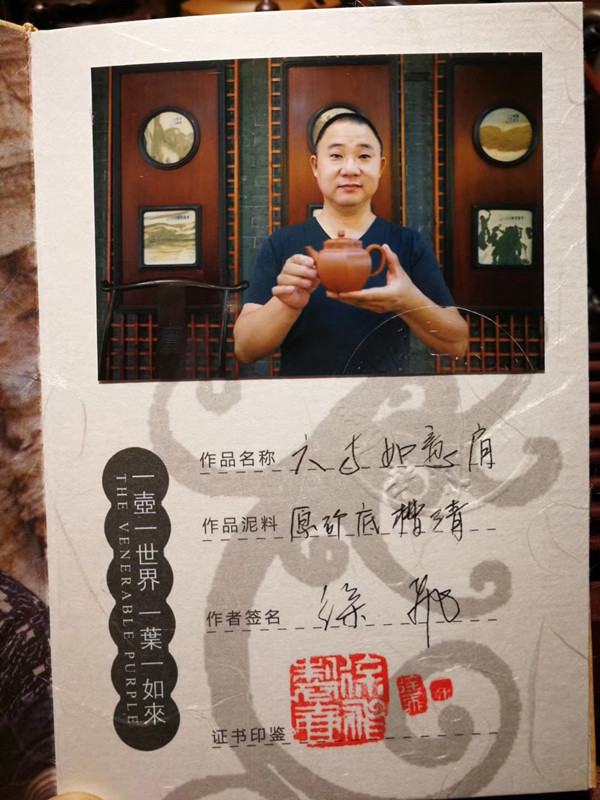 作品名称 六方如意肩
作品泥料 原矿底槽清
作者签名 徐
证书印鉴
一壺一世界 一葉一如來
THE VENERABLE PURPLE